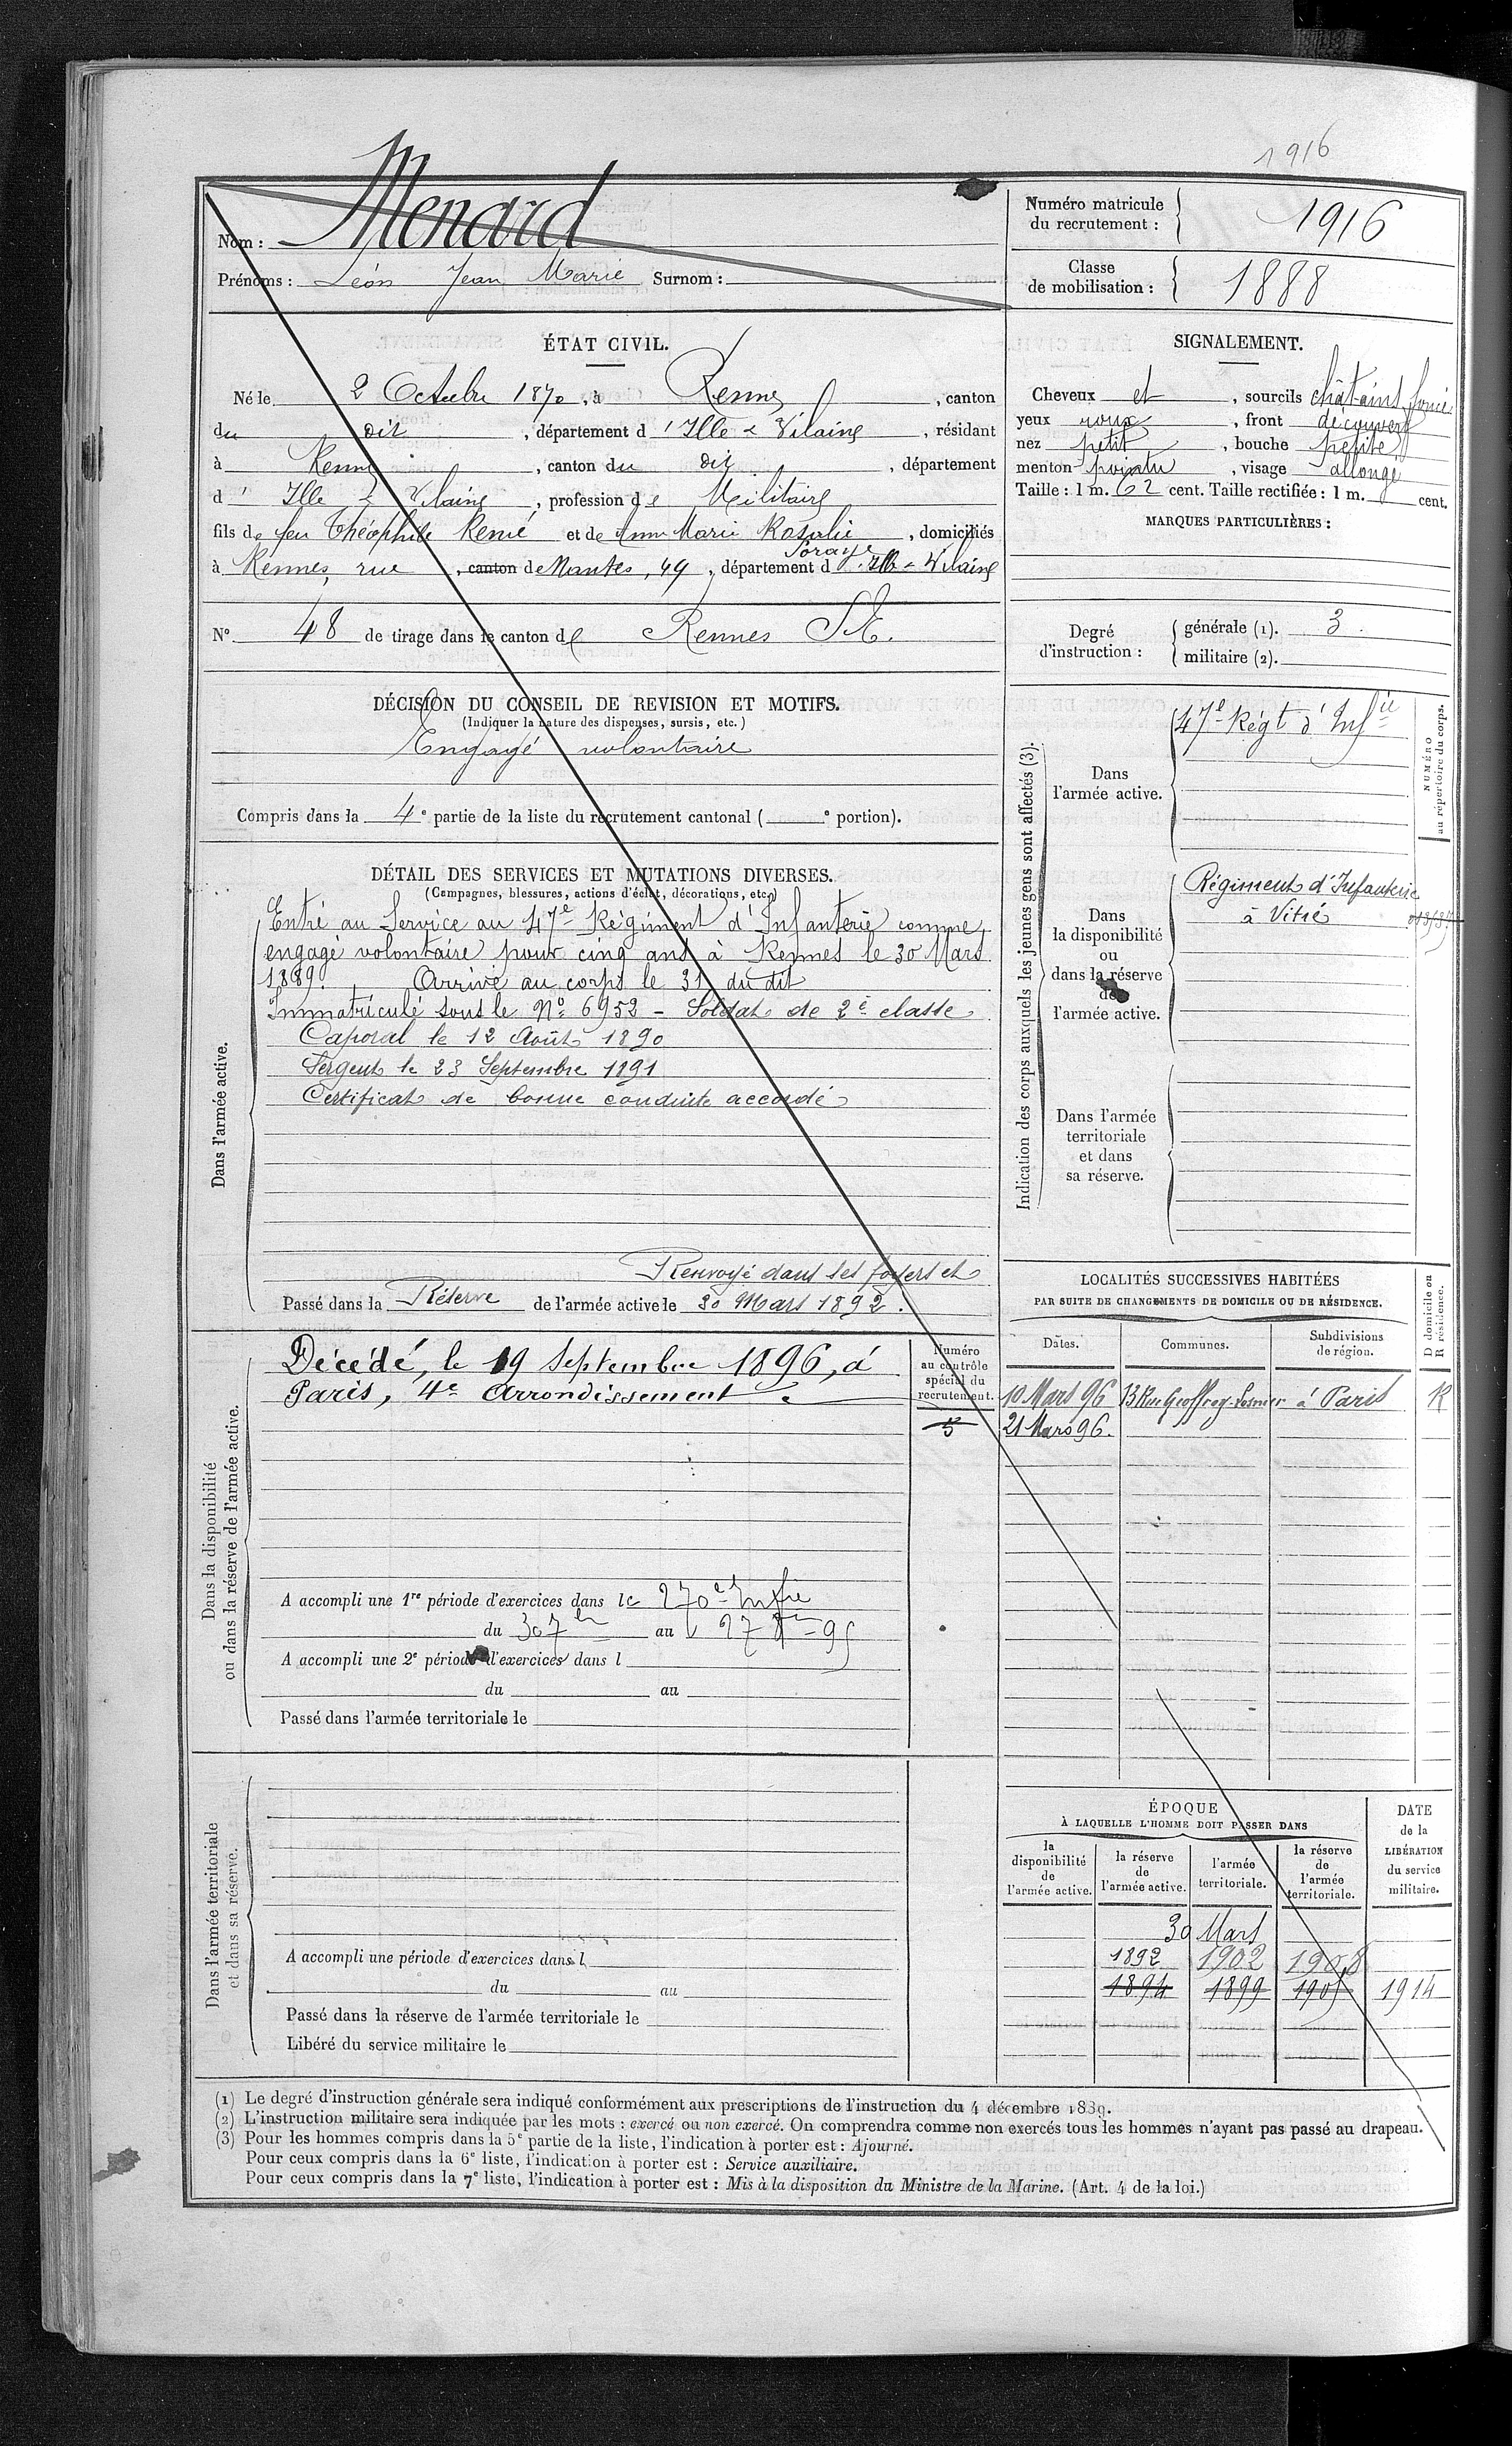 1916
Nom : Menard
Prénoms : Léon Jean Marie Surnom :
Numéro matricule du recrutement : 1916
Classe de mobilisation : 1888
ÉTAT CIVIL.
Né le 2 Octobre 1870, à Rennes, canton
du dit, département d'Ille & Vilaine, résidant
à Rennes, canton du dit, département
d'Ille & Vilaine, profession de Militaire
fils de feu Théophile René et de Anne Marie Rosalie
, domiciliés
à Rennes, rue, canton de Nantes, 49, département d'Ille & Vilaine
N° 48 de tirage dans le canton de Rennes S.E.
SIGNALEMENT.
Cheveux et, sourcils châtains foncé
yeux roux, front découvert
nez petit, bouche petite
menton pointu, visage allongé
Taille : 1 m. 62 cent. Taille rectifiée : 1 m. cent.
MARQUES PARTICULIÈRES :
Degré d'instruction : générale (1). 3.
militaire (2).
DÉCISION DU CONSEIL DE REVISION ET MOTIFS.
(Indiquer la nature des dispenses, sursis, etc.)
Engagé volontaire
Compris dans la 4e partie de la liste du recrutement cantonal ( e portion).
DÉTAIL DES SERVICES ET MUTATIONS DIVERSES.
(Campagnes, blessures, actions d'éclat, décorations, etc.)
Dans l'armée active.
Entré au Service au 47e Régiment d'Infanterie comme
engagé volontaire pour cinq ans à Rennes le 30 Mars
1889. Arrivé au corps le 31 du dit
Immatriculé sous le No 6952 - Soldat de 2e classe
Caporal le 12 Août 1890
Sergent le 23 Septembre 1891
Certificat de bonne conduite accordé
Renvoyé dans ses foyers et
Passé dans la Réserve de l'armée active le 30 Mars 1892.
Indication des corps auxquels les jeunes gens sont affectés (3).
NUMÉRO au répertoire du corps.
Dans l'armée active.
47e Régt d'Infie
Dans la disponibilité ou dans la réserve de l'armée active.
Régiment d'Infanterie
à Vitré
Dans l'armée territoriale et dans sa réserve.
LOCALITÉS SUCCESSIVES HABITÉES
PAR SUITE DE CHANGEMENTS DE DOMICILE OU DE RÉSIDENCE.
D domicile ou R résidence.
Dates. Communes. Subdivisions de région.
10 Mars 96 13 Rue Geoffroy-Lasnier à Paris R
21 Mars 96.
Dans la disponibilité ou dans la réserve de l'armée active.
Décédé, le 19 Septembre 1896, à
Paris, 4e Arrondissement
Numéro au contrôle spécial du recrutement.
5
A accompli une 1re période d'exercices dans le 270e Infie
du 30 7bre au 27 95
A accompli une 2e période d'exercices dans l
du au
Passé dans l'armée territoriale le
Dans l'armée territoriale et dans sa réserve.
A accompli une période d'exercices dans l
du au
Passé dans la réserve de l'armée territoriale le
Libéré du service militaire le
ÉPOQUE
À LAQUELLE L'HOMME DOIT PASSER DANS
la disponibilité de l'armée active.
la réserve de l'armée active.
l'armée territoriale.
la réserve de l'armée territoriale.
DATE de la LIBÉRATION du service militaire.
30 Mars
1892 1902 1908
1894 1899 1905 1914
(1) Le degré d'instruction générale sera indiqué conformément aux prescriptions de l'instruction du 4 décembre 1889.
(2) L'instruction militaire sera indiquée par les mots : exercé ou non exercé. On comprendra comme non exercés tous les hommes n'ayant pas passé au drapeau.
(3) Pour les hommes compris dans la 5e partie de la liste, l'indication à porter est : Ajourné.
Pour ceux compris dans la 6e liste, l'indication à porter est : Service auxiliaire.
Pour ceux compris dans la 7e liste, l'indication à porter est : Mis à la disposition du Ministre de la Marine. (Art. 4 de la loi.)